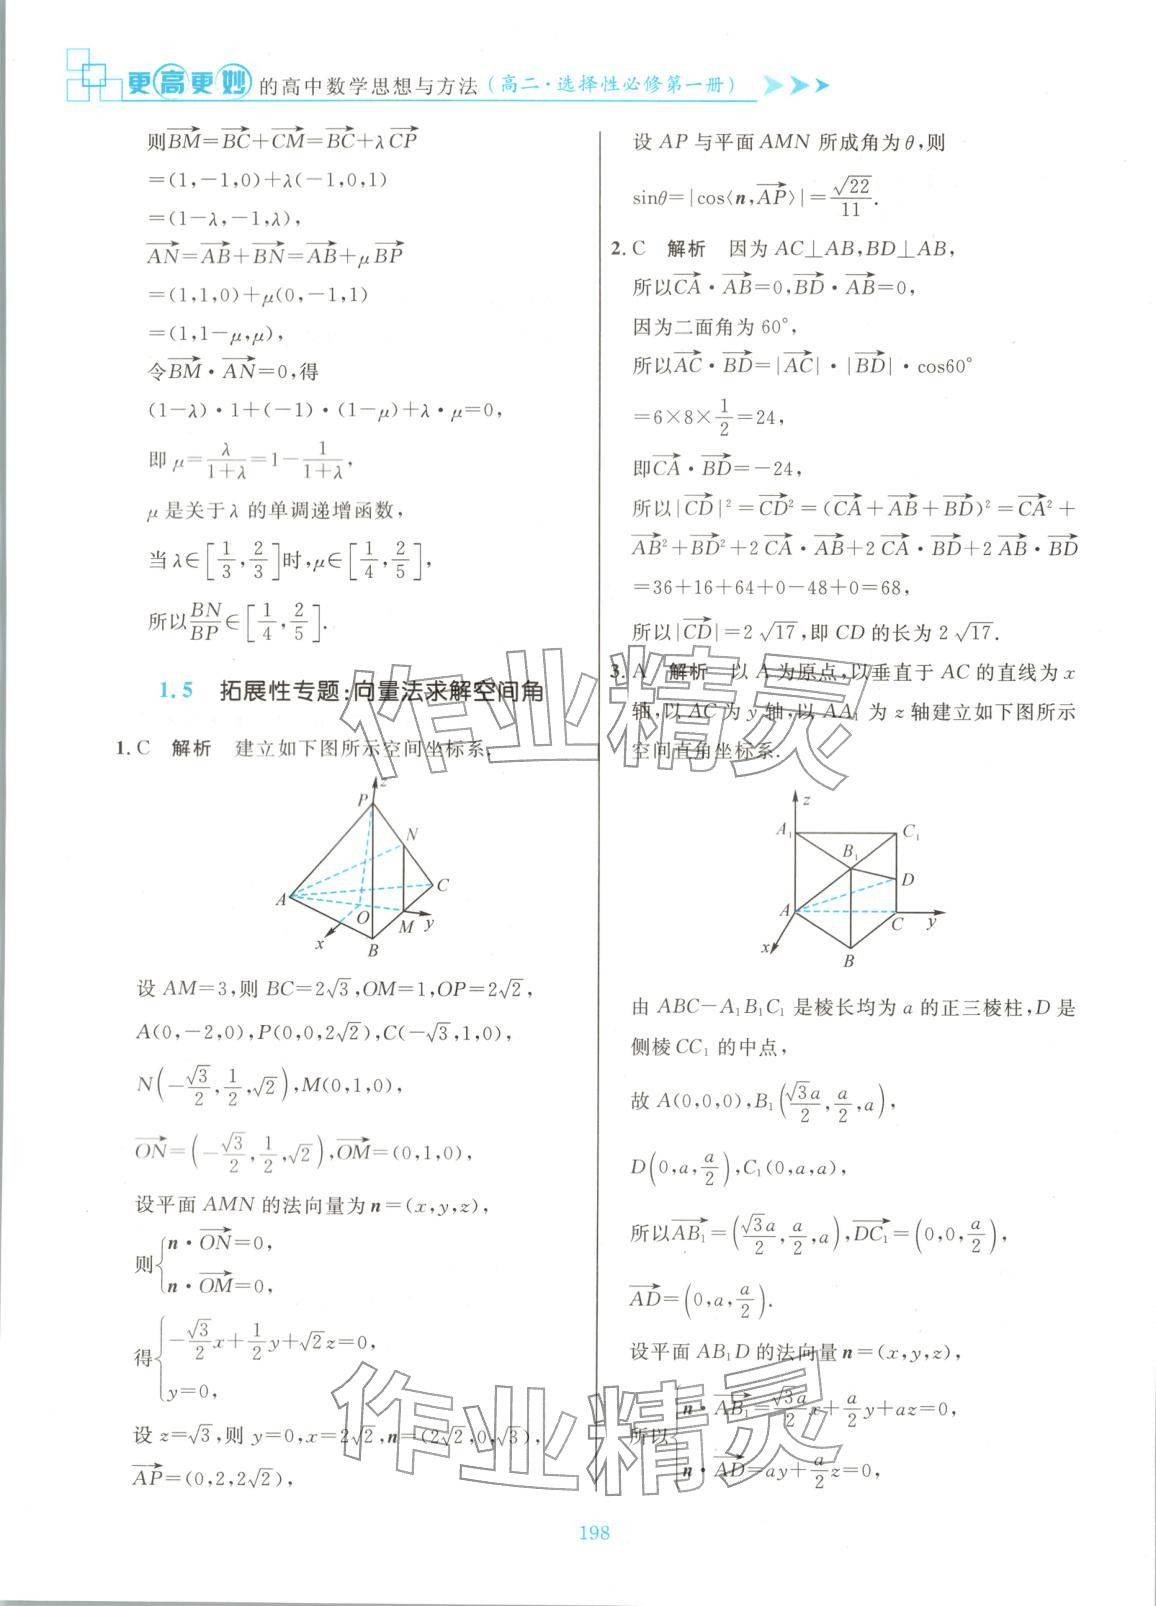 更高更妙的高中数学思想与方法(高二·选择性必修第一册)
则BM=BC+CM=BC+λCP
=(1,-1,0)+λ(-1,0,1)
=(1-λ,-1,λ),
AN=AB+BN=AB+μBP
=(1,1,0)+μ(0,-1,1)
=(1,1-μ,μ),
令BM·AN=0,得
(1-λ)·1+(-1)·(1-μ)+λ·μ=0,
即 μ=λ/(1+λ)=1-1/(1+λ),
μ是关于λ的单调递增函数,
当λ∈[1/3,2/3]时,μ∈[1/4,2/5],
所以BN/BP∈[1/4,2/5].
1.5 拓展性专题:向量法求解空间角
1. C 解析 建立如下图所示空间坐标系.
z
P
N
A
C
O
M
y
x
B
设 AM=3,则 BC=2√3,OM=1,OP=2√2,
A(0,-2,0),P(0,0,2√2),C(-√3,1,0),
N(-√3/2,1/2,√2),M(0,1,0),
ON=(-√3/2,1/2,√2),OM=(0,1,0),
设平面 AMN 的法向量为 n=(x,y,z),
则{n·ON=0,
n·OM=0,
得{-√3/2x+1/2y+√2z=0,
y=0,
设 z=√3,则 y=0,x=2√2,n=(2√2,0,√3),
AP=(0,2,2√2),
设 AP 与平面 AMN 所成角为θ,则
sinθ=|cos⟨n,AP⟩|=√22/11.
2. C 解析 因为 AC⊥AB,BD⊥AB,
所以CA·AB=0,BD·AB=0,
因为二面角为 60°,
所以AC·BD=|AC|·|BD|·cos60°
=6×8×1/2=24,
即CA·BD=-24,
所以|CD|²=CD²=(CA+AB+BD)²=CA²+
AB²+BD²+2CA·AB+2CA·BD+2AB·BD
=36+16+64+0-48+0=68,
所以|CD|=2√17,即 CD 的长为 2√17.
3. A 解析 以 A 为原点,以垂直于 AC 的直线为 x
轴,以 AC 为 y 轴,以 AA₁ 为 z 轴建立如下图所示
空间直角坐标系.
z
A₁
C₁
B₁
D
A
C
y
x
B
由 ABC-A₁B₁C₁ 是棱长均为 a 的正三棱柱,D 是
侧棱 CC₁ 的中点,
故 A(0,0,0),B₁(√3a/2,a/2,a),
D(0,a,a/2),C₁(0,a,a),
所以AB₁=(√3a/2,a/2,a),DC₁=(0,0,a/2),
AD=(0,a,a/2).
设平面 AB₁D 的法向量 n=(x,y,z),
所以{n·AB₁=√3a/2x+a/2y+az=0,
n·AD=ay+a/2z=0,
作业精灵
作业精灵
198